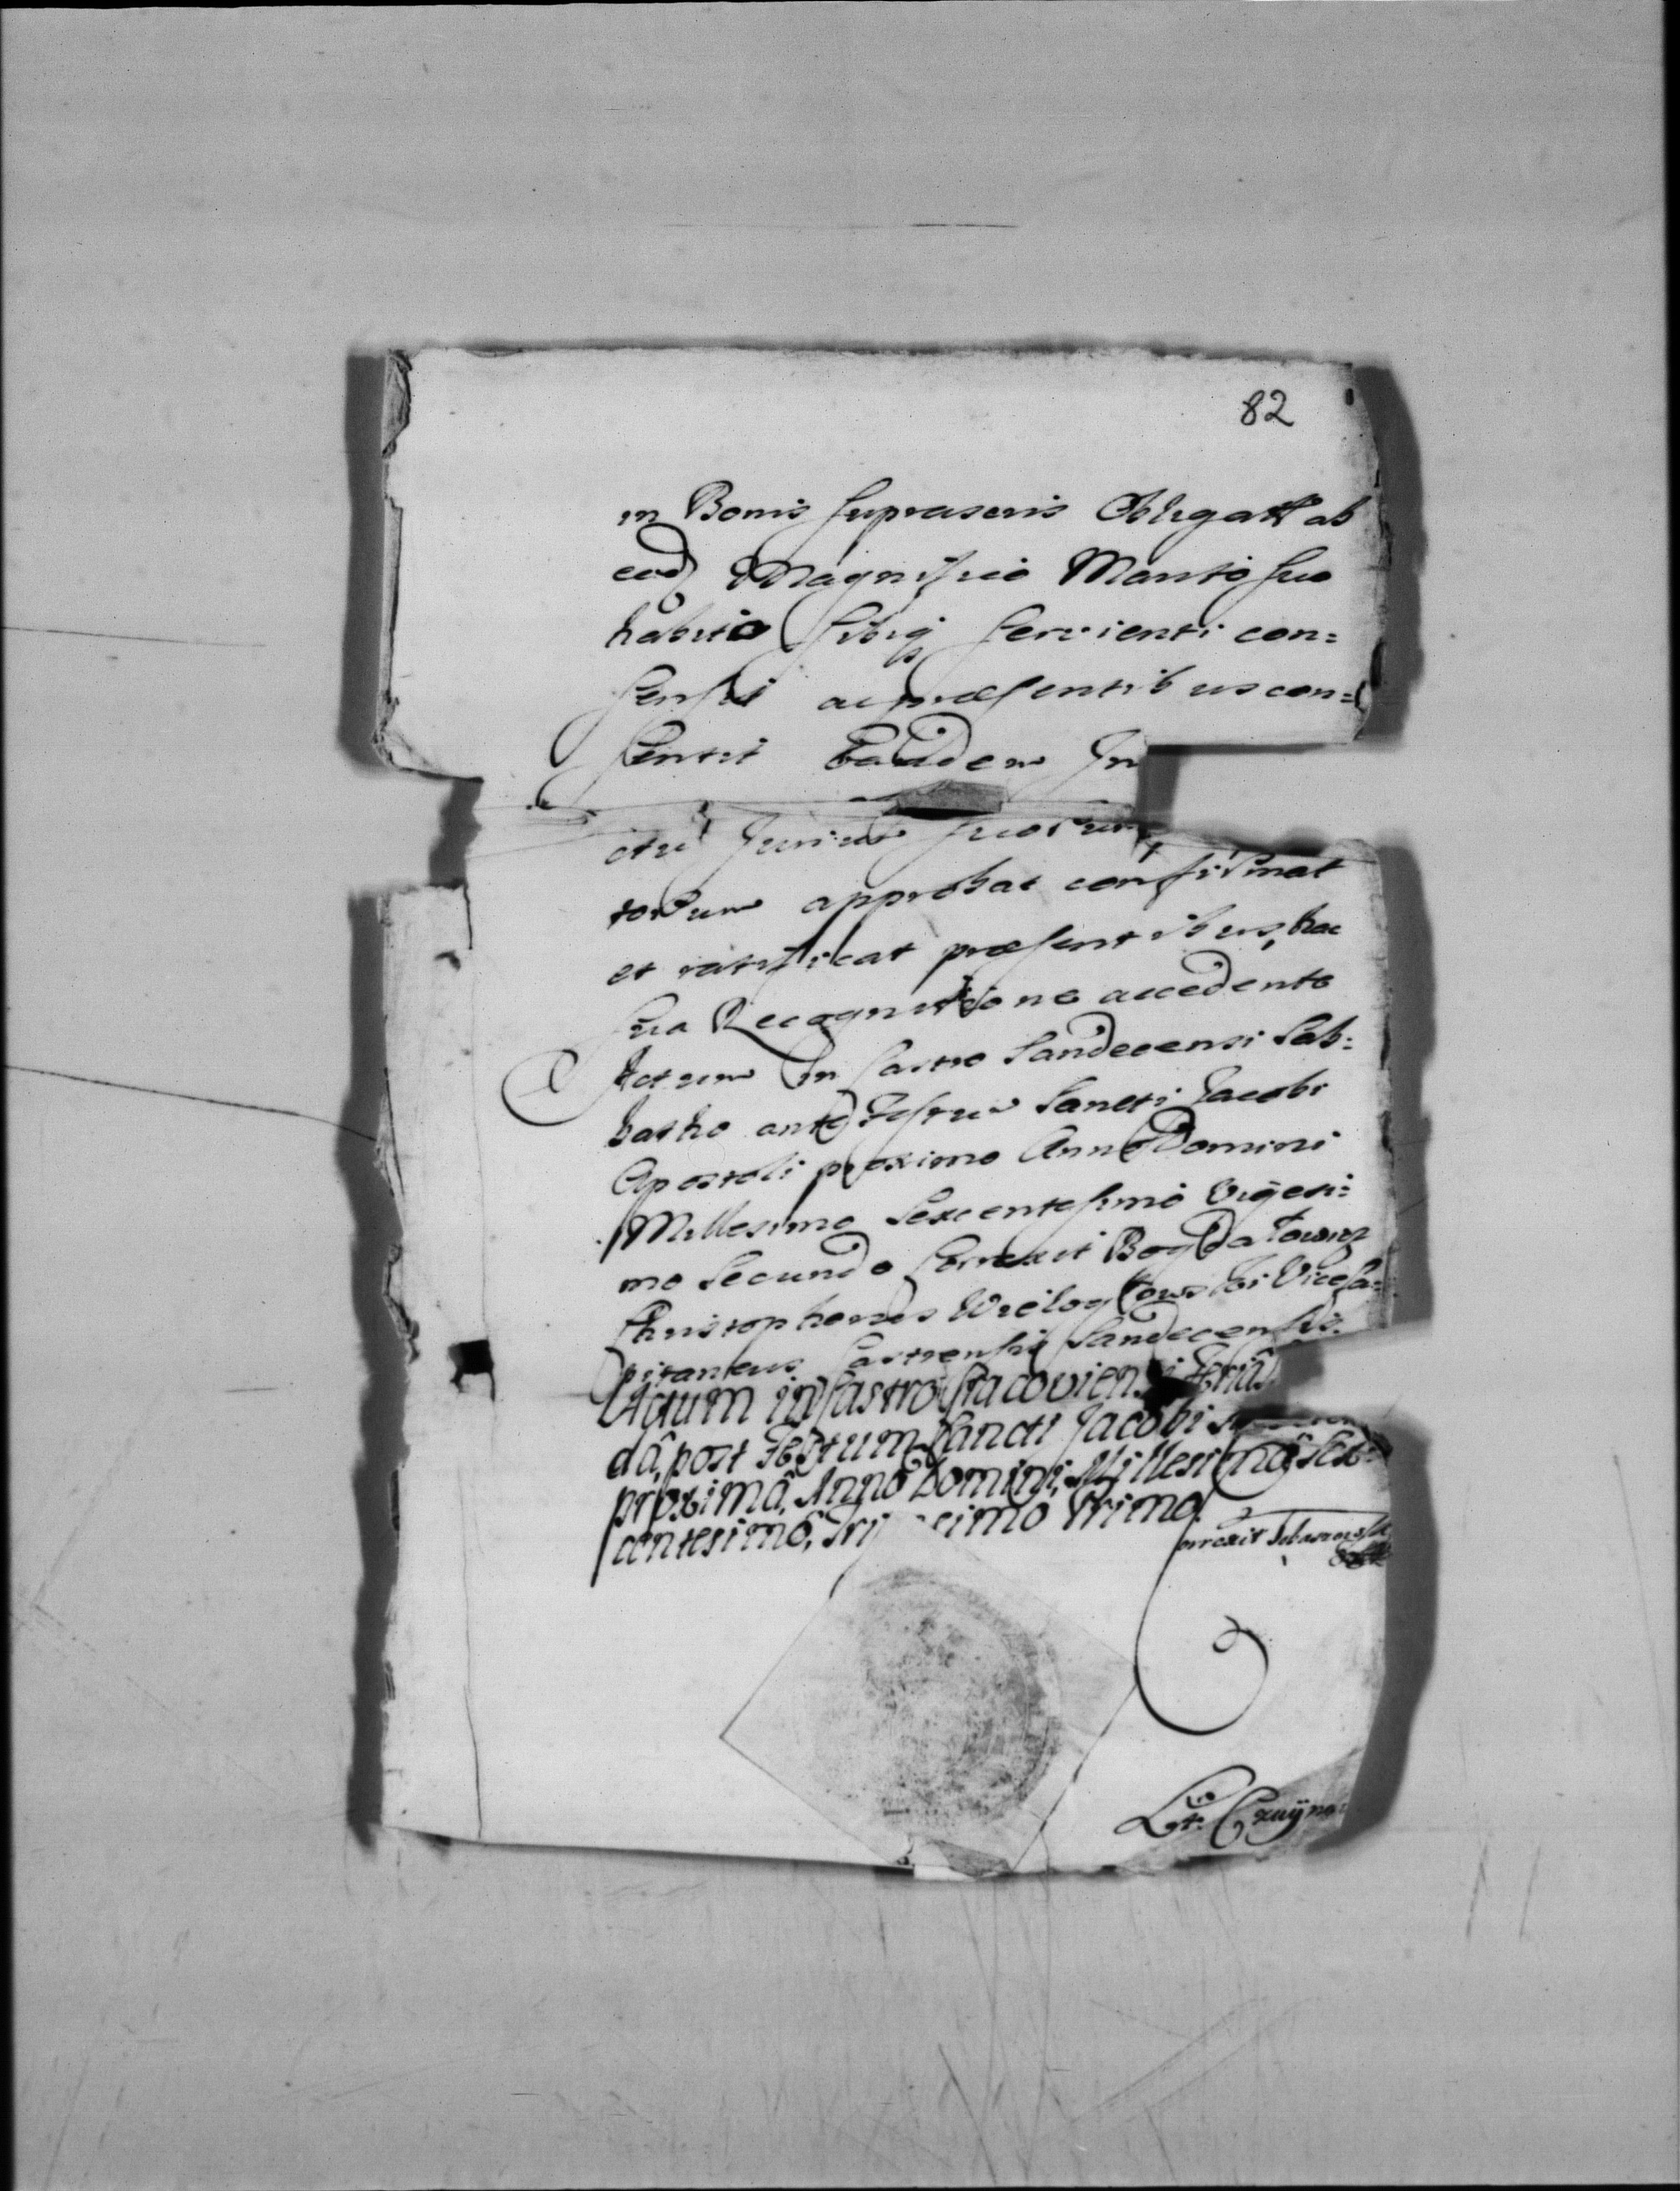 82
in Bonis suprascris Obligatt ab
eod Magnifico Marito suo
habito sibiq servienti con=
sensit ac præsentibus con=
sentit Eandem In
ctu Jurium suorum
torum approbat confirmat
et ratificat præsentibus, hac
sua Recognitione accedente
Actum in Castro Sandecensi Sab:
batho ante Festum Sancti Jacobi
Apostoli proximo Anno Domini
Millesimo Sexcentesimo Vigesi:
mo Secundo Correxit Bogdałowicz
Christophorus Wielogłowski ViceCa:
pitaneus Castrensis Sandecensis.
Actum in Castro Cracoviensi Feriâ
dâ, post Festum Sancti Jacobi
proximâ, Annô Domini, Millesimô, Sex=
centesimô, Primo.
orrexit